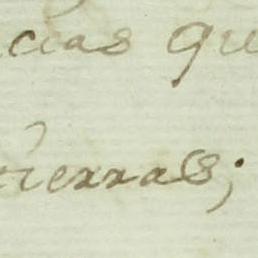 cias que
tierras;